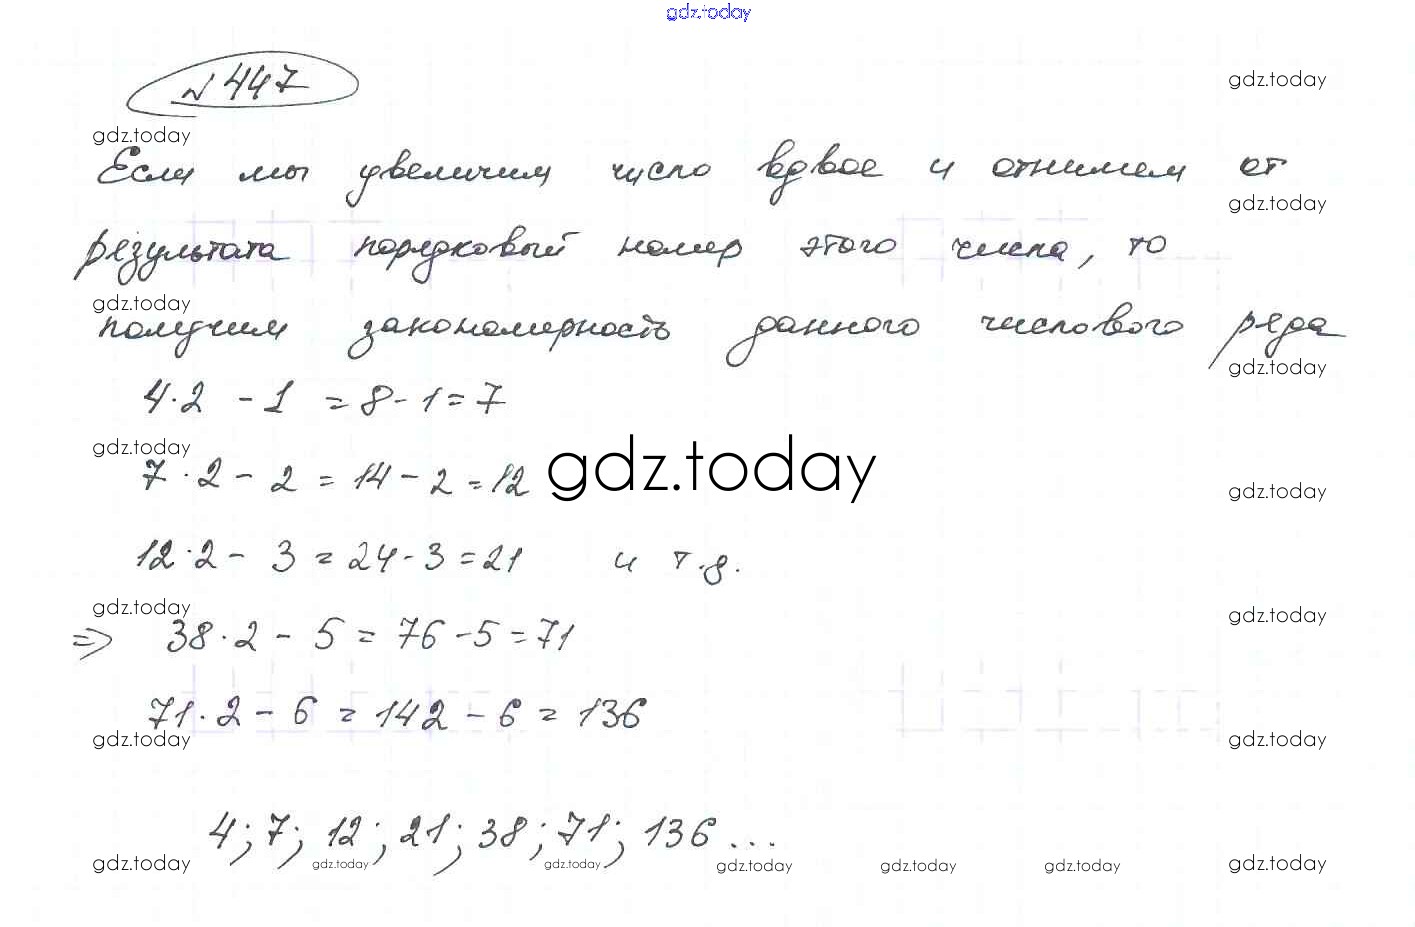 gdz.today
№ 447
gdz.today
gdz.today
Если мы увеличим число вдвое и отнимем от
gdz.today
результата порядковый номер этого числа, то
gdz.today
получим закономерность данного числового ряда
gdz.today
4·2 - 1 = 8 - 1 = 7
gdz.today
7·2 - 2 = 14 - 2 = 12
gdz.today
gdz.today
12·2 - 3 = 24 - 3 = 21 и т.д.
gdz.today
gdz.today
=> 38·2 - 5 = 76 - 5 = 71
71·2 - 6 = 142 - 6 = 136
gdz.today
gdz.today
4; 7; 12; 21; 38; 71; 136...
gdz.today gdz.today gdz.today gdz.today gdz.today gdz.today gdz.today